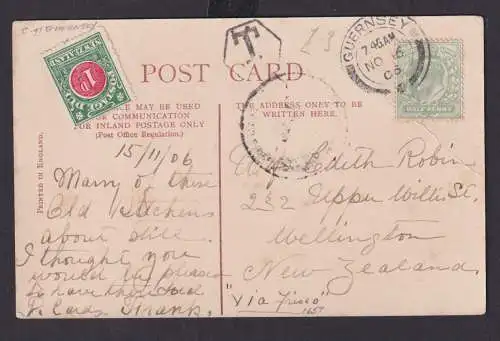 C-TS GUERNSEY
13
T
GUERNSEY
7.45AM
NO 16
06
NEW ZEALAND
1D.
POSTAGE DUE
HALFPENNY
POST CARD
MAY BE USED
OR COMMUNICATION
FOR INLAND POSTAGE ONLY
(Post Office Regulation.)
THE ADDRESS ONLY TO BE
WRITTEN HERE.
PRINTED IN ENGLAND.
15/11/06
Many of these
Old Kitchens
about still.
I thought you
would be pleased
to have this ised
P. Card. Frank.
Edith Robin
232 Upper Willis St.
Wellington
New Zealand.
"Via Frisco"
1657